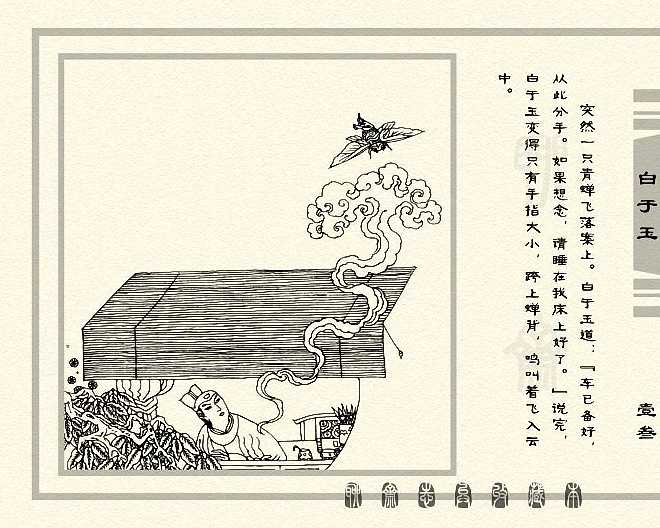 白于玉
壹叁
突然一只青蝉飞落案上。白于玉道：『车已备好，
从此分手。如果想念，请睡在我床上好了。』说完，
白于玉变得只有手指大小，跨上蝉背，鸣叫着飞入云
中。